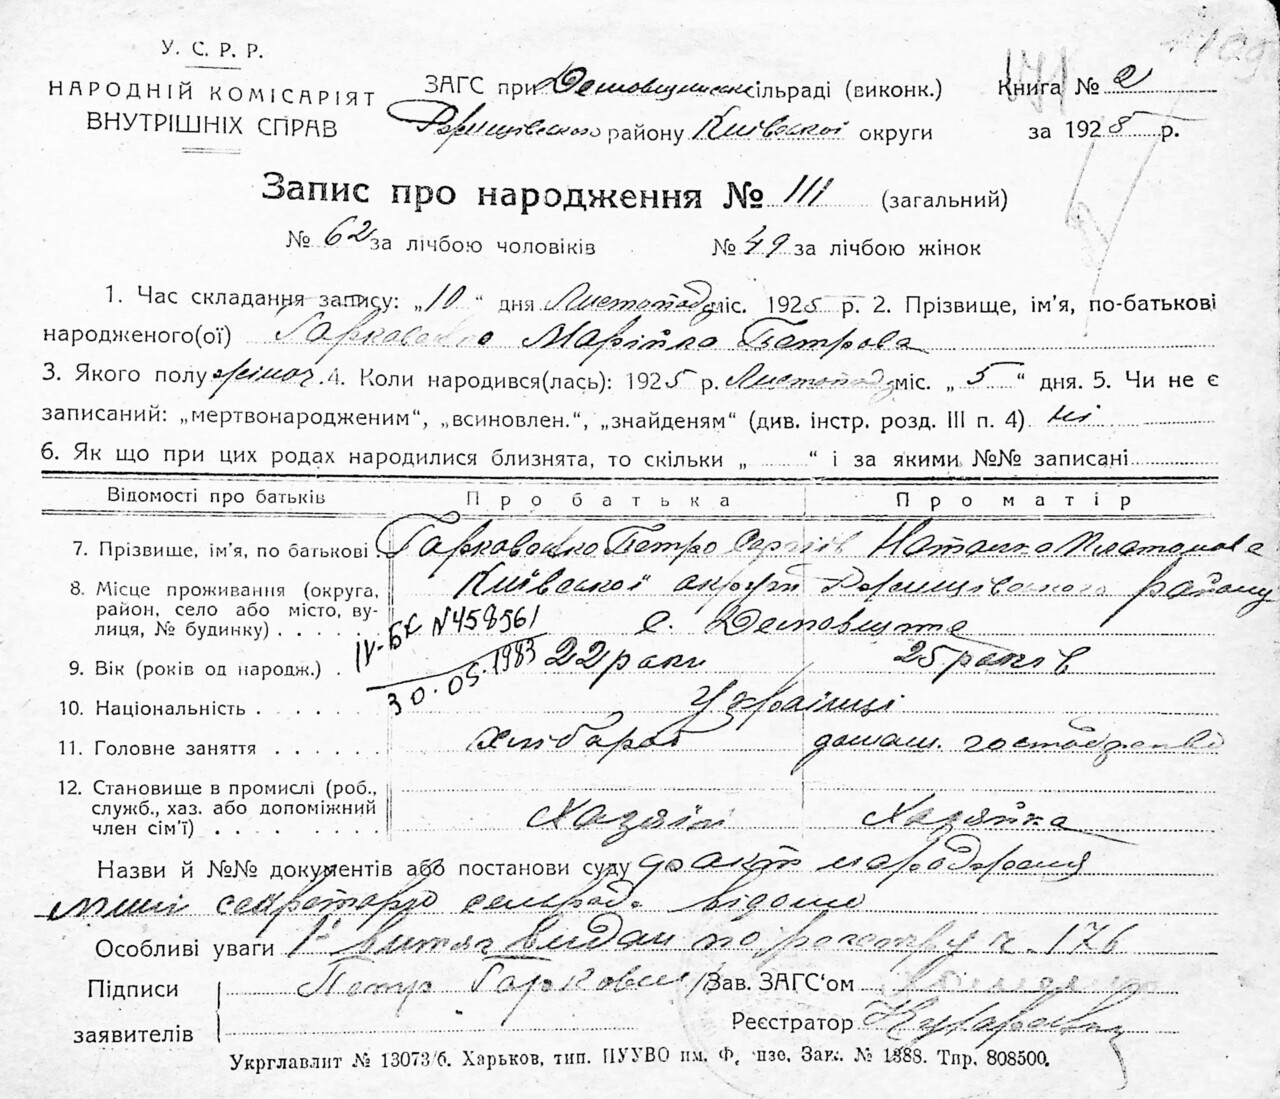 У. С. Р. Р.
НАРОДНІЙ КОМІСАРІЯТ
ВНУТРІШНІХ СПРАВ
ЗАГС при сільраді (виконк.)
району Київської округи
Книга № 2
за 1925 р.
171
Запис про народження № 111 (загальний)
№ 62 за лічбою чоловіків № 49 за лічбою жінок
1. Час складання запису: „10“ дня Листопад міс. 1925 р. 2. Прізвище, ім'я, по-батькові
народженого(ої) Гарковенко Марійка Петрова
3. Якого полу жіноч. 4. Коли народився(лась): 1925 р. Листопад міс. „5“ дня. 5. Чи не є
записаний: „мертвонародженим“, „всиновлен.“, „знайденям“ (див. інстр. розд. III п. 4) ні
6. Як що при цих родах народилися близнята, то скільки „ “ і за якими №№ записані
Відомості про батьків Про батька Про матір
7. Прізвище, ім'я, по батькові Гарковенко Петро Сергіїв Наталка Платонова
8. Місце проживання (округа, Київської округи району
район, село або місто, ву-
лиця, № будинку) с.
IV-БК №458561
30.05.1983
9. Вік (років од народж.) 22 роки 25 років
10. Національність Українці
11. Головне заняття Хлібороб домаш. господарство
12. Становище в промислі (роб.,
служб., хаз. або допоміжний
член сім'ї) Хазяїн Хазяйка
Назви й №№ документів або постанови суду факт народження
мині секретарю сельради відомо
Особливі уваги 1й витяг видан по реєстру ч. 176
Підписи Петр Зав. ЗАГС'ом
заявителів Реєстратор
Укрглавлит № 13073/б. Харьков, тип. ПУУВО им. Фрунзе. Зак. № 1388. Тир. 808500.